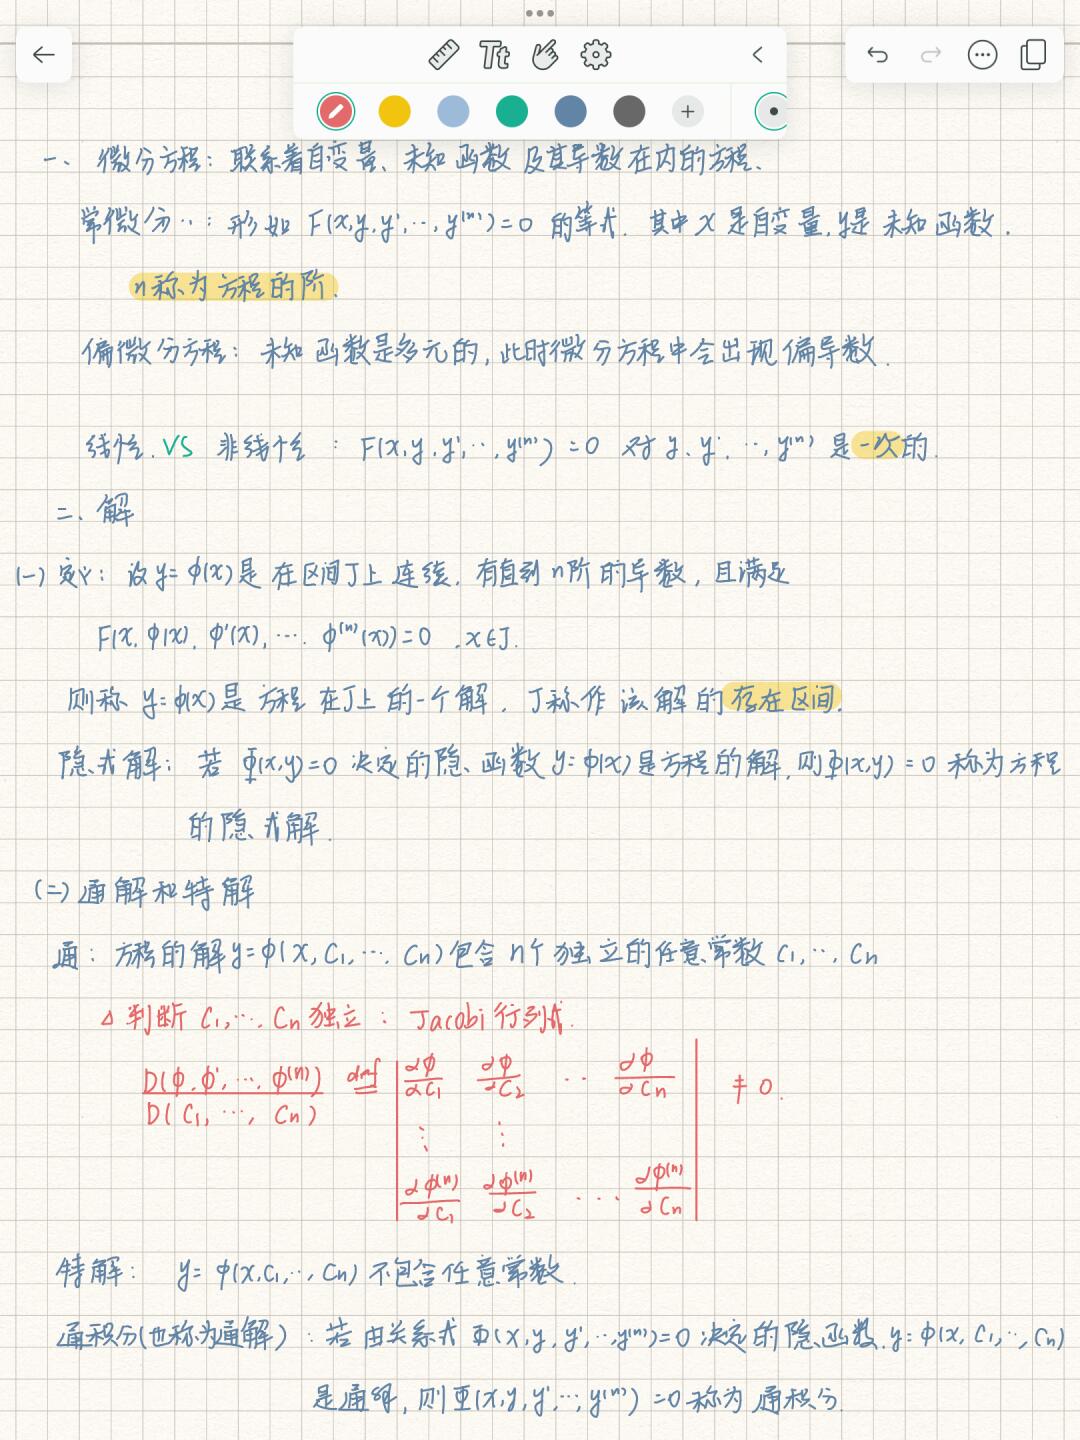 Tt
一、微分方程：联系着自变量、未知函数及其导数在内的方程、
常微分‥：形如 F(x,y,y',…,y⁽ⁿ⁾)=0 的等式. 其中 x 是自变量,y是未知函数.
n称为方程的阶.
偏微分方程：未知函数是多元的,此时微分方程中会出现偏导数.
线性. VS 非线性：F(x,y,y',…,y⁽ⁿ⁾)=0 对 y、y'、…,y⁽ⁿ⁾ 是一次的.
二、解
(一) 定义：设 y=φ(x)是在区间J上连续.有直到n阶的导数,且满足
F(x,φ(x),φ'(x),…,φ⁽ⁿ⁾(x))=0 ,x∈J.
则称 y=φ(x)是方程在J上的一个解. J称作该解的存在区间.
隐式解：若 Φ(x,y)=0 决定的隐函数 y=φ(x)是方程的解,则Φ(x,y)=0 称为方程
的隐式解.
(二) 通解和特解
通：方程的解y=φ(x,C₁,…,Cn)包含n个独立的任意常数C₁,…,Cn
△ 判断 C₁,…,Cn独立：Jacobi行列式.
D(φ,φ',…,φ⁽ⁿ⁾)/D(C₁,…,Cn) def= | ∂φ/∂C₁ ∂φ/∂C₂ ‥ ∂φ/∂Cn | ≠0.
⋮ ⋮
∂φ⁽ⁿ⁾/∂C₁ ∂φ⁽ⁿ⁾/∂C₂ … ∂φ⁽ⁿ⁾/∂Cn
特解：y=φ(x,C₁,…,Cn)不包含任意常数.
通积分(也称为通解)：若由关系式 Φ(x,y,y',…,y⁽ⁿ⁾)=0决定的隐函数.y=φ(x,C₁,…,Cn)
是通解,则Φ(x,y,y',…,y⁽ⁿ⁾)=0称为通积分.